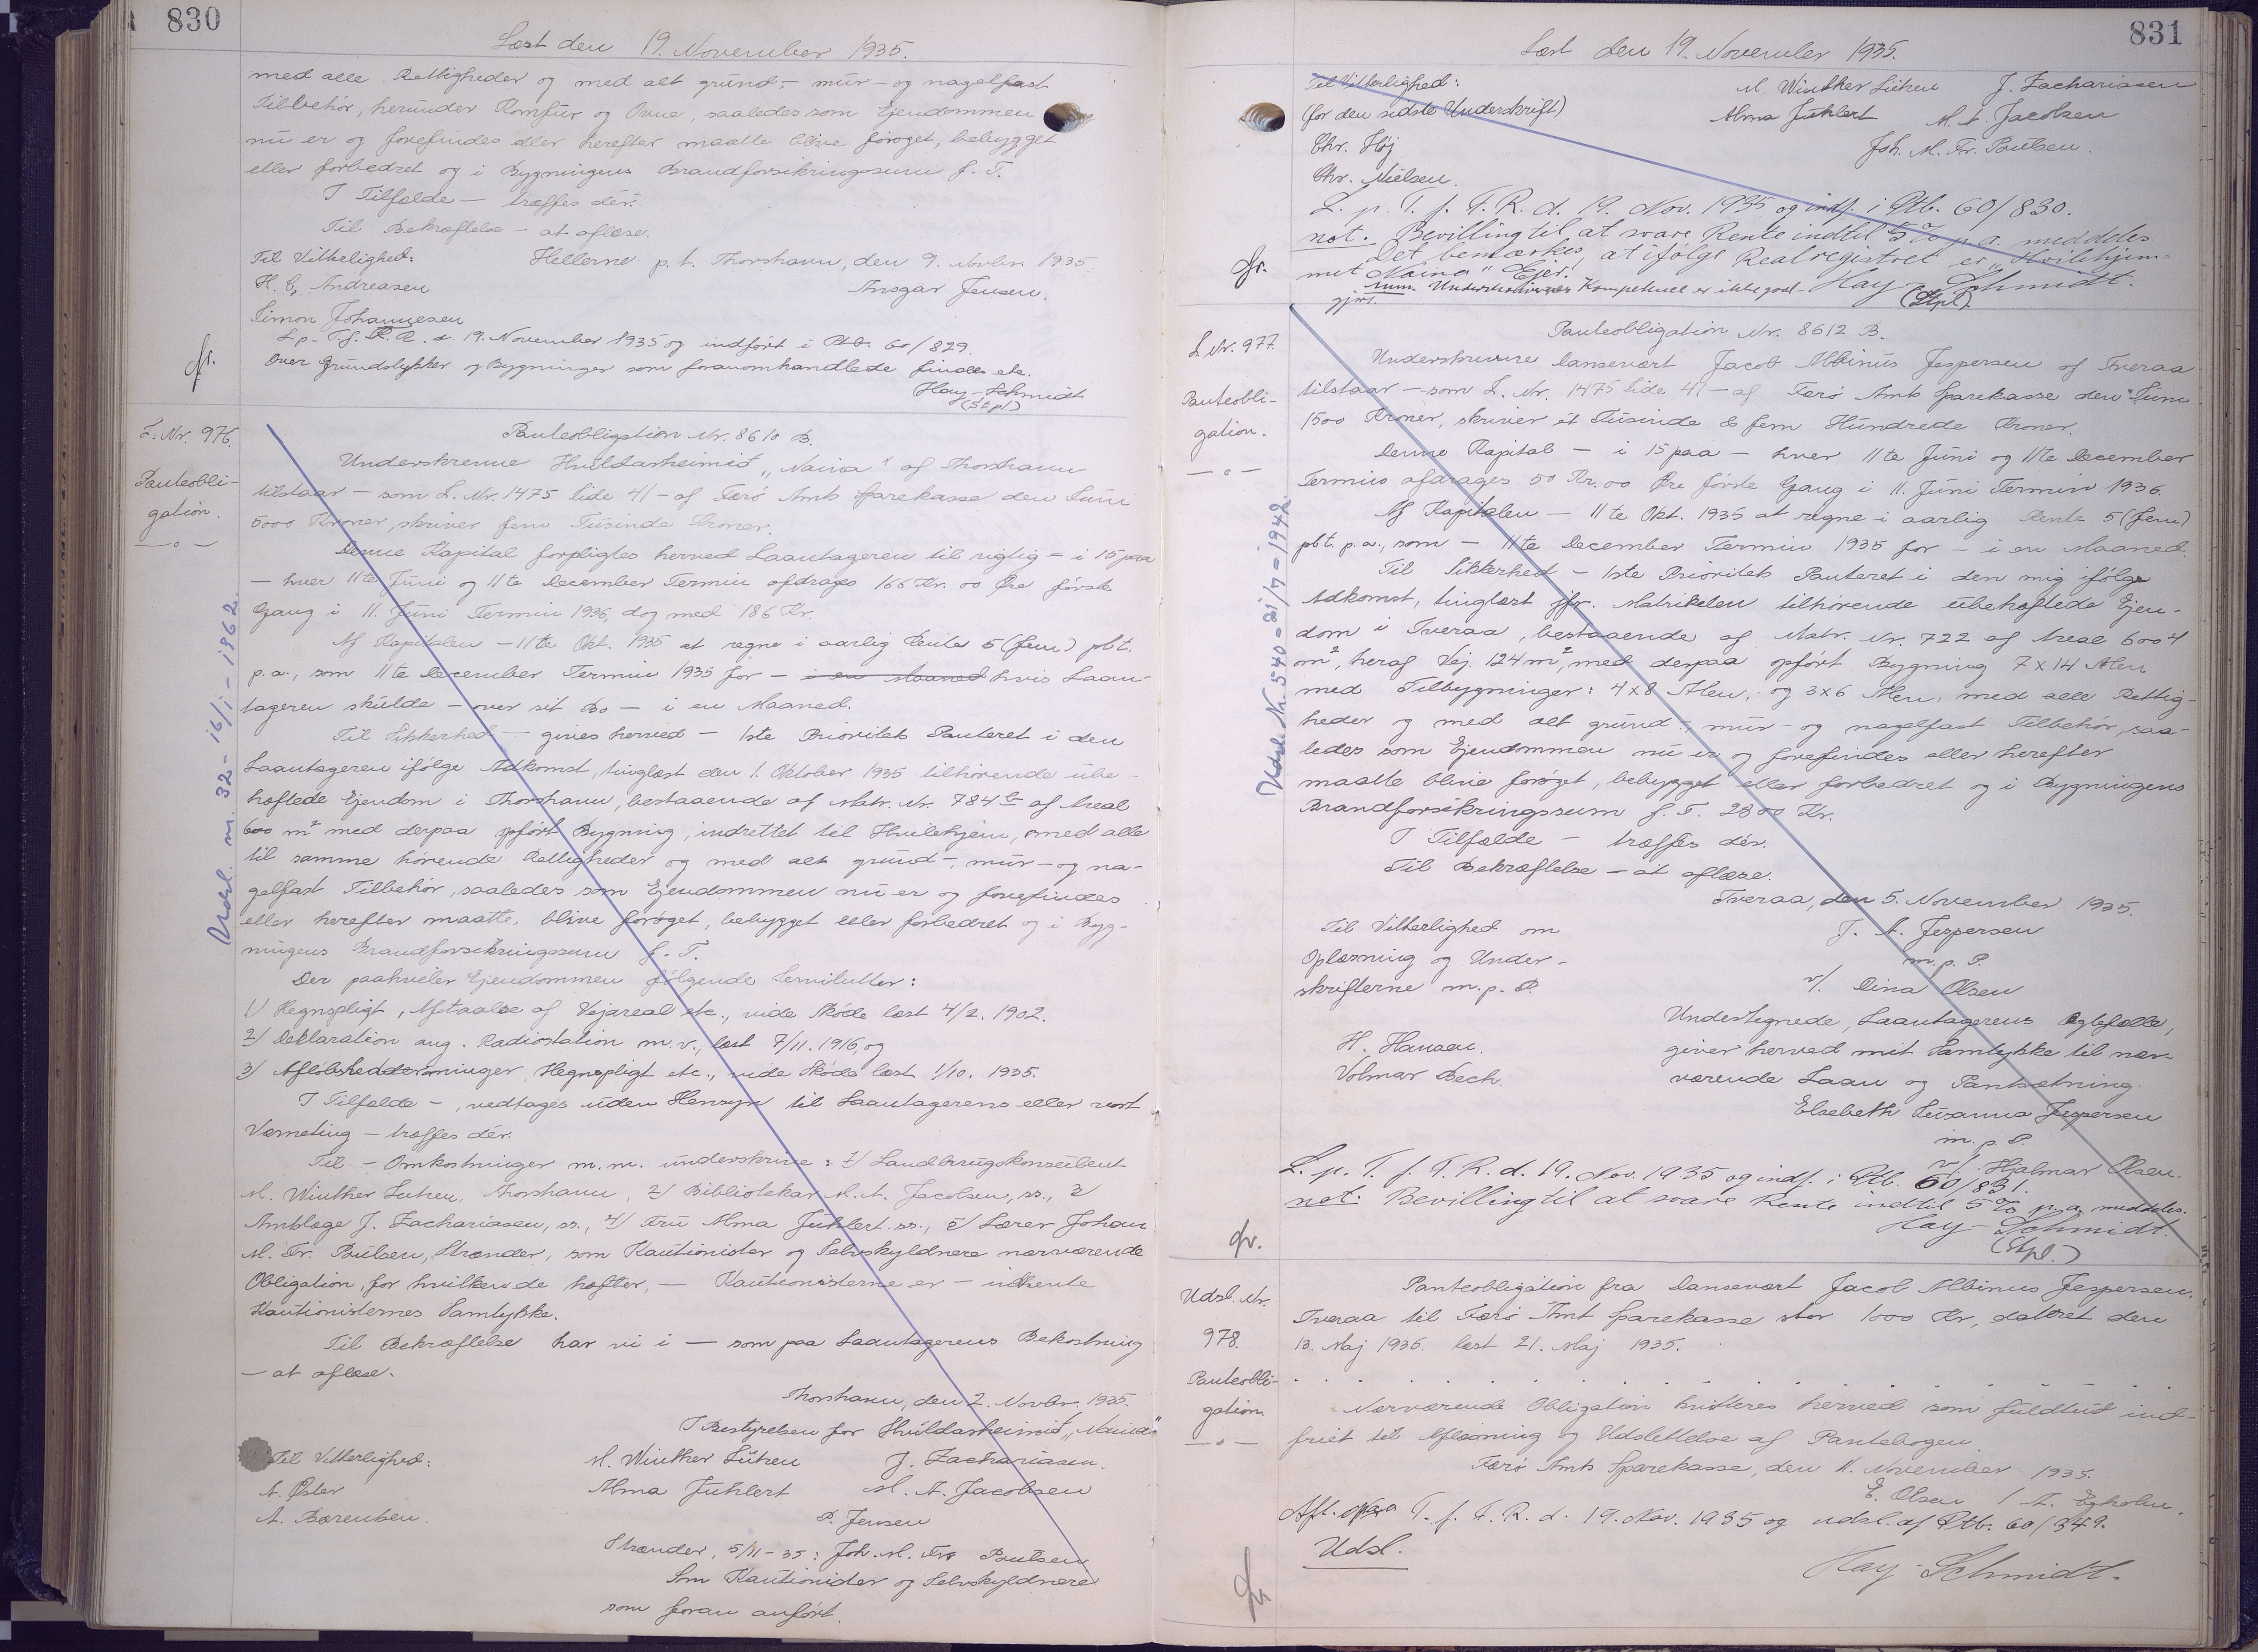 830
Læst den 19. November 1935.
med alle Rettigheder og med alt grund-, mur- og nagelfast
Tilbehör, herunder Komfur og Ovne, saaledes som Ejendommen
nu er og forefindes eller herefter maatte blive foröget, bebygget
eller forbedret og i Bygningens Brandforsikringssum f. T.
I Tilfælde — træffes dér.
Til Bekræftelse — at aflæse.
Til Vitterlighed: Hellerne p. t. Thorshavn, den 9. Novbr. 1935.
H. C. Andreasen Ansgar Jensen.
Simon Johannesen
L. p. T. f. F. R. d. 19. November 1935 og indfört i Ptb. 60/829.
Over Grundstykker og Bygninger som foranomhandlede findes etc.
Hay-Schmidt
(Stpl)
fr.
L. Nr. 976.
Panteobli-
gation.
— o —
Panteobligation Nr. 8610 B.
Underskrevne Hvíldarheimið „Naina" af Thorshavn
tilstaar — som L. Nr. 1475 Side 41 — af Færö Amts Sparekasse den Sum
5000 Kroner, skriver fem Tusinde Kroner.
Denne Kapital forpligtes herved Laantageren til rigtig — i 15 paa
— hver 11te Juni og 11te December Termin afdrages 166 Kr. 00 Øre förste
Gang i 11. Juni Termin 1936, dog med 186 Kr.
Af Kapitalen — 11te Okt. 1935 at regne i aarlig Rente 5 (fem) pCt.
p.a., som 11te December Termin 1935 for — i en Maaned hvis Laan-
tageren skulde — over sit Bo — i en Maaned.
Til Sikkerhed — gives herved — 1ste Prioritets Panteret i den
Laantageren ifölge Adkomst, tinglæst den 1. Oktober 1935 tilhörende ube-
hæftede Ejendom i Thorshavn, bestaaende af Matr. Nr. 784 af Areal
600 m² med derpaa opfört Bygning, indrettet til Hvilehjem, med alle
til samme hörende Rettigheder og med alt grund-, mur- og na-
gelfast Tilbehör, saaledes som Ejendommen nu er og forefindes
eller herefter maatte blive foröget, bebygget eller forbedret og i Byg-
ningens Brandforsikringssum f. T.
Der paahviler Ejendommen fölgende Servitutter:
1) Hegnspligt, Afstaaelse af Vejareal etc., vide Sköde læst 4/2. 1902.
2) Deklaration ang. Radiostation m.v., læst 7/11. 1916, og
3) Hegnspligt etc., vide Sköde læst 1/10. 1935.
I Tilfælde —, vedtages uden Hensyn til Laantagerens eller vort
Værneting — træffes dér.
Til — Omkostninger m.m. underskrive: 1) Landbrugskonsulent
M. Winther Lützen, Thorshavn, 2) Bibliotekar M. A. Jacobsen, ss., 3)
Amtlæge J. Zachariasen, ss., 4) Fru Alma Juhlert ss., 5) Lærer Johan
M. Fr. Poulsen, Strænder, som Kautionister og Selvskyldnere nærværende
Obligation, for hvilken de hæfter, — Kautionisterne er — indhente
Kautionisternes Samtykke.
Til Bekræftelse har vi i — som paa Laantagerens Bekostning
— at aflæse.
Thorshavn, den 2. Novbr. 1935.
I Bestyrelsen for Hvíldarheimið „Naina"
Til Vitterlighed: M. Winther Lützen J. Zachariasen.
A. Øster Alma Juhlert M. A. Jacobsen
A. Bærentsen. P. Jensen
Strænder, 5/11-35: Joh. M. Fr. Poulsen
Som Kautionister og Selvskyldnere
som foran anfört.
Udsl. nr. 32 - 16/1 - 1962.
831
Læst den 19. November 1935.
Til Vitterlighed: M. Winther Lützen J. Zachariasen
(for den sidste Underskrift) Alma Juhlert M. A. Jacobsen
Chr. Höj Joh. M. Fr. Poulsen.
Chr. Nielsen.
L. p. T. f. F. R. d. 19. Nov. 1935 og indf. i Ptb. 60/830.
not. Bevilling til at svare Rente indtil 5% p. a. meddeles.
Det bemærkes, at ifölge Realregistret er „Hvilehjem-
met Naina" Ejer.
Underskrivernes Kompetence er ikke god-
gjort. Hay-Schmidt.
(Stpl.)
fr.
L. Nr. 977.
Panteobli-
gation.
— o —
Panteobligation Nr. 8612 B.
Underskrevne Dansevært Jacob Albinus Jespersen af Tveraa
tilstaar — som L. Nr. 1475 Side 41 — af Færö Amts Sparekasse den Sum
1500 Kroner, skriver et Tusinde & fem Hundrede Kroner.
Denne Kapital — i 15 paa — hver 11te Juni og 11te December
Termins afdrages 50 Kr. 00 Øre förste Gang i 11. Juni Termin 1936.
Af Kapitalen — 11te Okt. 1935 at regne i aarlig Rente 5 (fem)
pCt. p.a., som — 11te December Termin 1935 for — i en Maaned.
Til Sikkerhed — 1ste Prioritets Panteret i den mig ifölge
Adkomst, tinglæst jfr. Matrikelen tilhörende ubehæftede Ejen-
dom i Tveraa, bestaaende af Matr. Nr. 722 af Areal 6004
m², heraf Vej 124 m², med derpaa opfört Bygning 7 x 14 Alen
med Tilbygninger: 4 x 8 Alen, og 3 x 6 Alen, med alle Rettig-
heder og med alt grund-, mur- og nagelfast Tilbehör, saa-
ledes som Ejendommen nu er og forefindes eller herefter
maatte blive foröget, bebygget eller forbedret og i Bygningens
Brandforsikringssum f. T. 2800 Kr.
I Tilfælde — træffes dér.
Til Bekræftelse — at aflæse.
Tveraa, den 5. November 1935.
Til Vitterlighed om J. A. Jespersen
Oplæsning og Under- m. p. P.
skrifterne m. p. P. v/. Dina Olsen
Undertegnede, Laantagerens Ægtefælle,
H. Hansen. giver herved mit Samtykke til nær-
Volmar Bech. værende Laan og Pantsætning.
Elsebeth Susanna Jespersen
m. p. P.
v/. Hjalmar Olsen.
L. p. T. f. F. R. d. 19. Nov. 1935 og indf. i Ptb. 60/831.
not: Bevilling til at svare Rente indtil 5% p. a. meddeles.
Hay-Schmidt.
(Stpl.)
fr.
Udsl. Nr. 540 - 21/7 - 1942.
Udsl. Nr.
978.
Panteobli-
gation.
— o —
Panteobligation fra Dansevært Jacob Albinus Jespersen,
Tveraa til Færö Amt Sparekasse stor 1000 Kr, dateret den
13. Maj 1935. læst 21. Maj 1935.
Nærværende Obligation kvitteres herved som fuldtud ind-
friet til Aflæsning og Udslettelse af Pantebogen.
Færö Amts Sparekasse, den 11. November 1935.
E. Olsen / A. Egholm.
T. f. F. R. d. 19. Nov. 1935 og udsl. af Ptb. 60/349.
Udsl.
Hay-Schmidt.